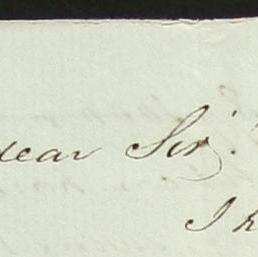 dear Sir!
I h